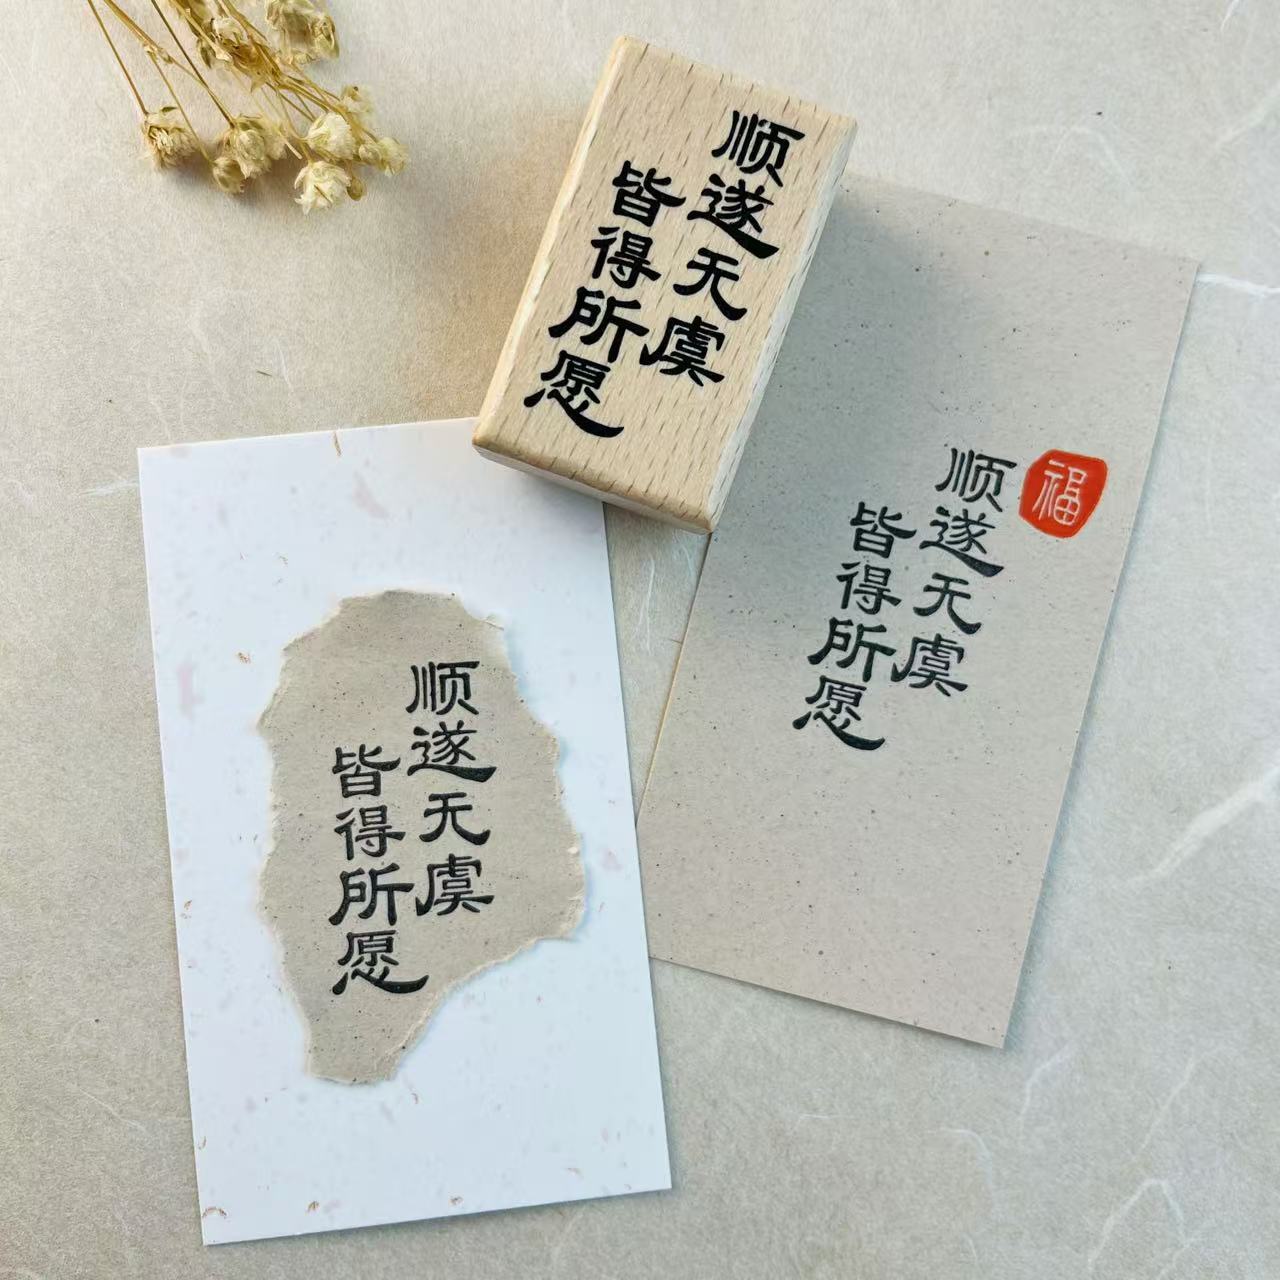 顺遂无虞
皆得所愿
顺遂无虞
皆得所愿
福
顺遂无虞
皆得所愿